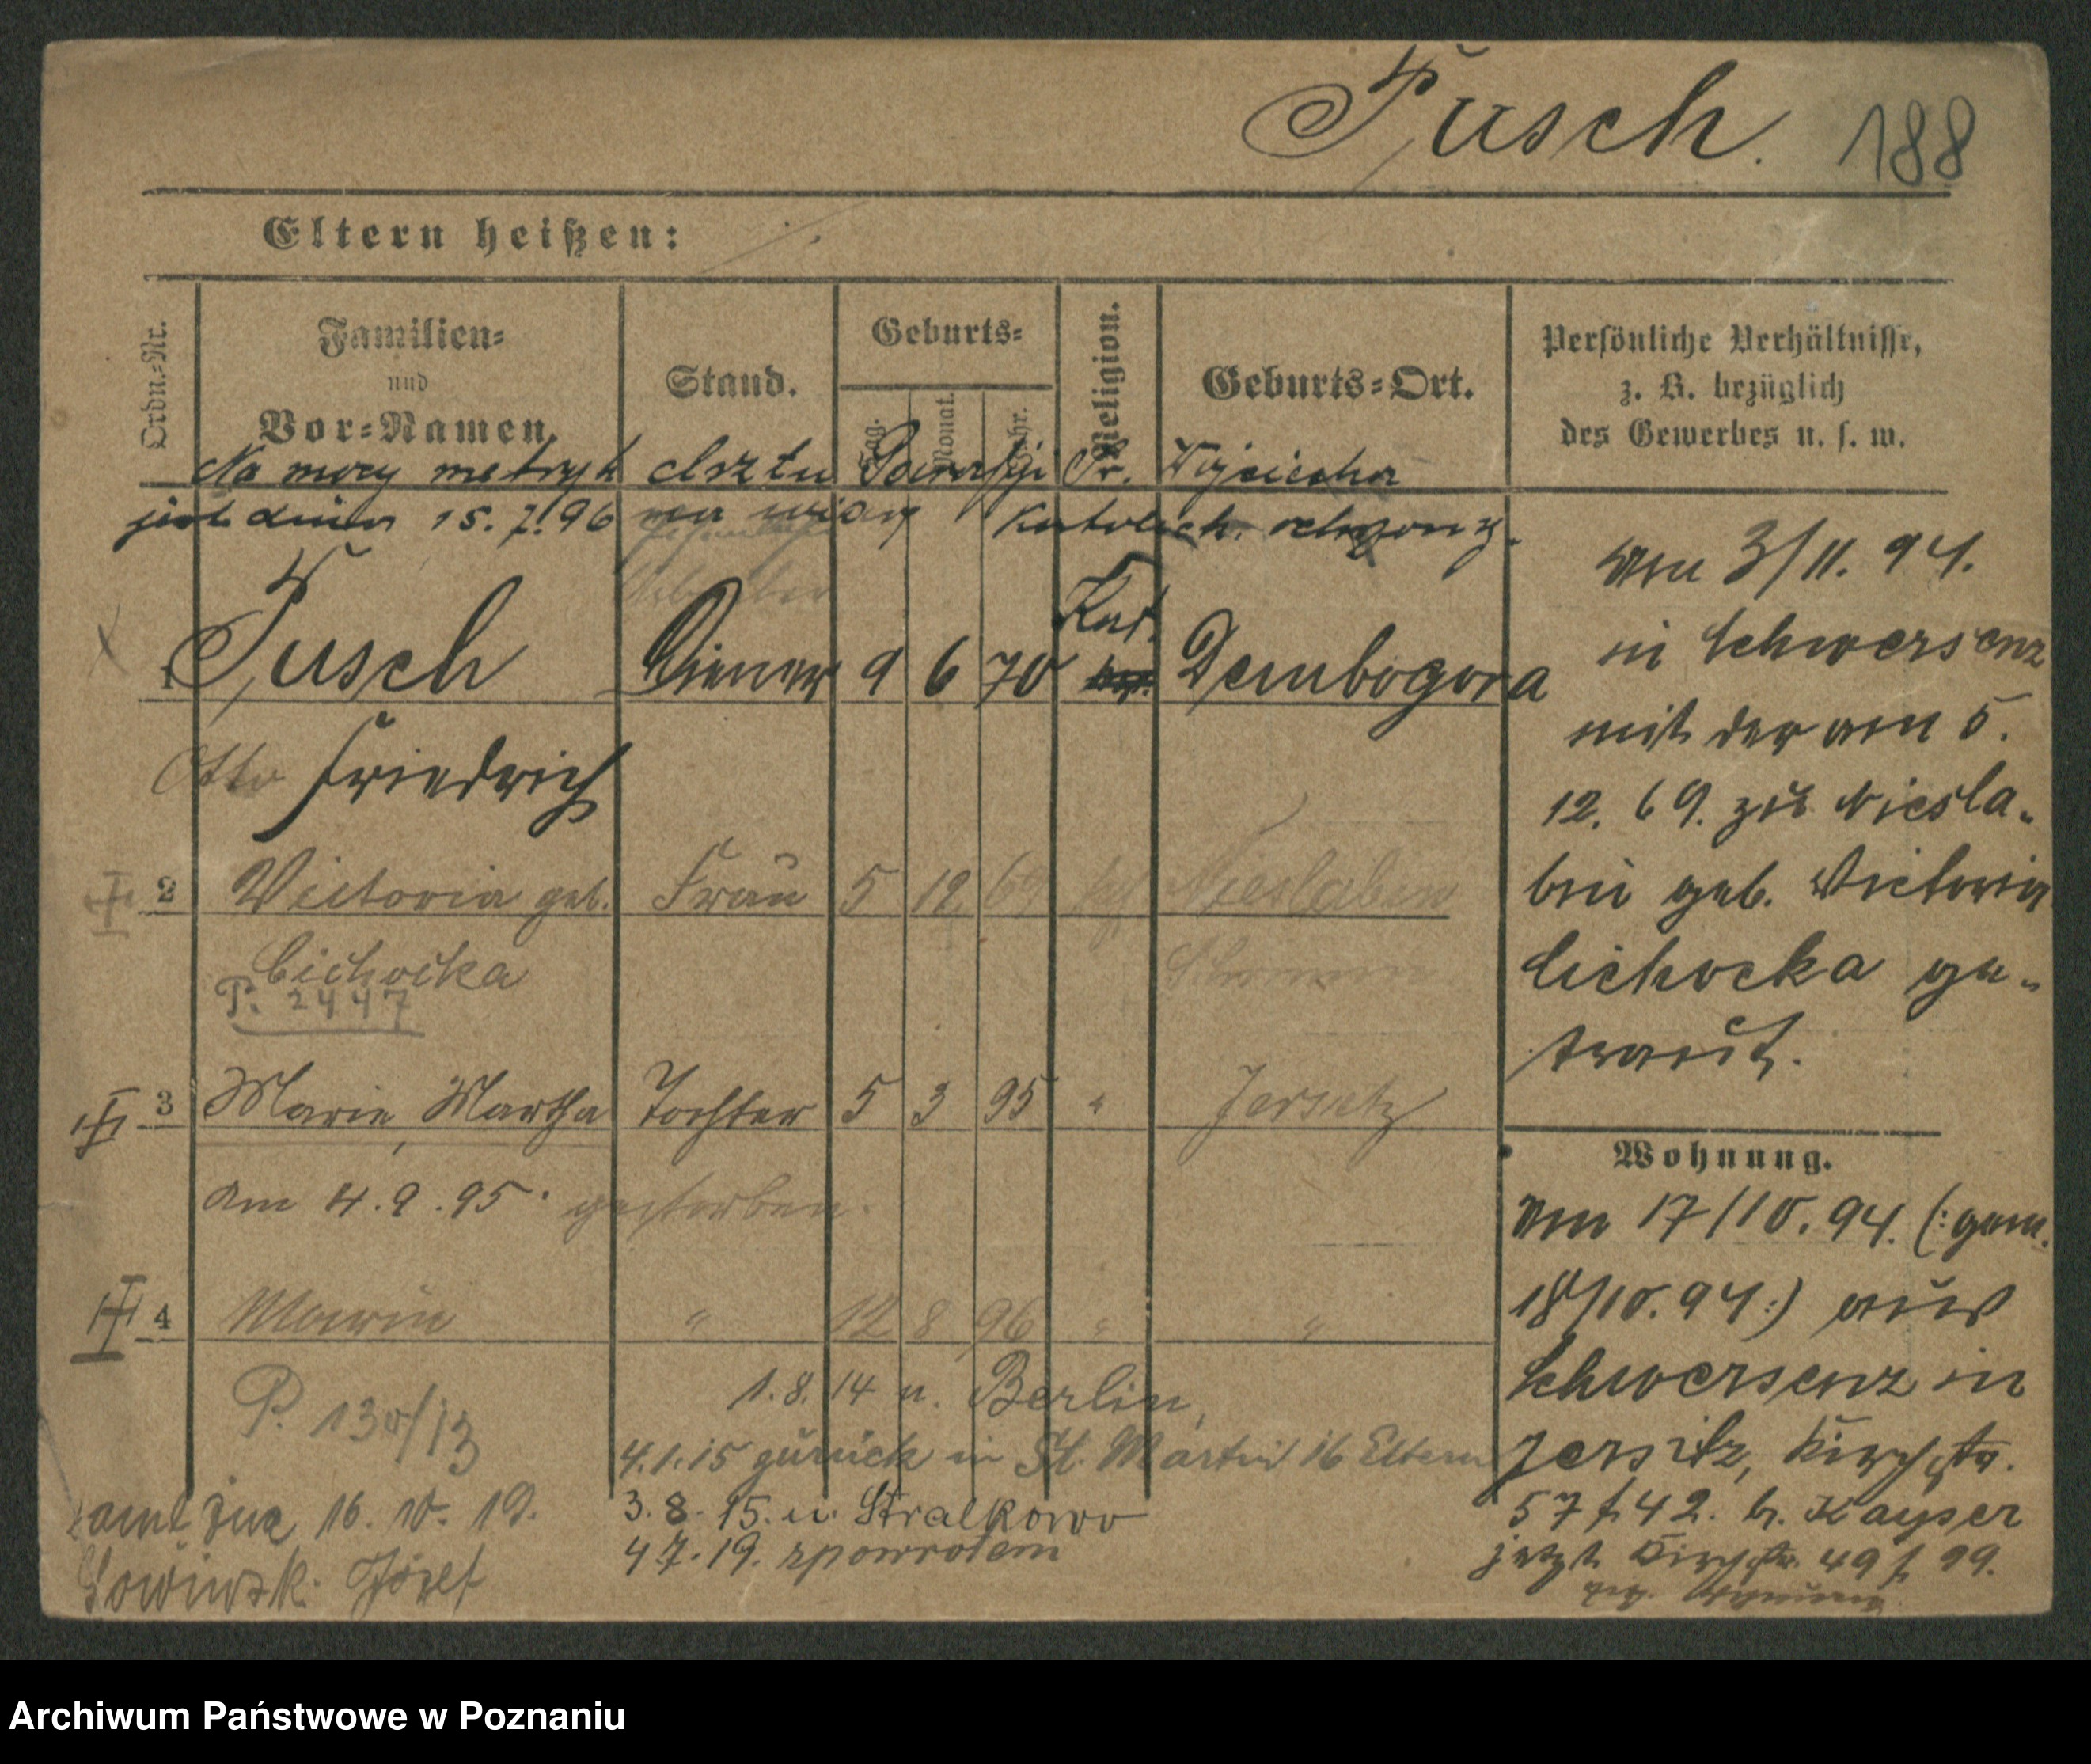 Tusch. 188
Eltern heißen: ·/.
Ordn.-Nr.
Familien=
und
Vor=Namen.
Stand.
Geburts=
Tag.
Monat.
Jahr.
Religion.
Geburts=Ort.
Persönliche Verhältnisse,
z. B. bezüglich
des Gewerbes u. s. w.
Na mocy metryk chrztu Parafji Św. Wojciecha
jest dnia 15.7.96 na wiary katolick.
1 Tusch Diener 9 6 70 Kat. Dembogora
Otto Friedrich
2 Victoria geb. Frau 5 12 69 Nieslabin
Cichocka
P. 2447
3 Marie, Martha Tochter 5 3 95 " Jersitz
am 4.9.95. gestorben.
4 Marie " 12 8 96 " "
P. 130/13
1.8.14 n. Berlin,
4.1.15 zurück in St. Martin 16 Eltern
3.8.15. n. Stralkowo
4.7.19. zpowrotem
16.10.19.
Józef
Am 3/11. 94.
in Schwersenz
mit der am 5.
12. 69. zu Niesla-
bin geb. Victoria
Cichocka ge-
traut.
Wohnung.
Am 17/10. 94. (:gem.
18/10. 94:) aus
Schwersenz in
Jersitz, Kirchstr.
57 f. 42. b. Kayser
jetzt Kirchstr. 49 f. 99.
Archiwum Państwowe w Poznaniu